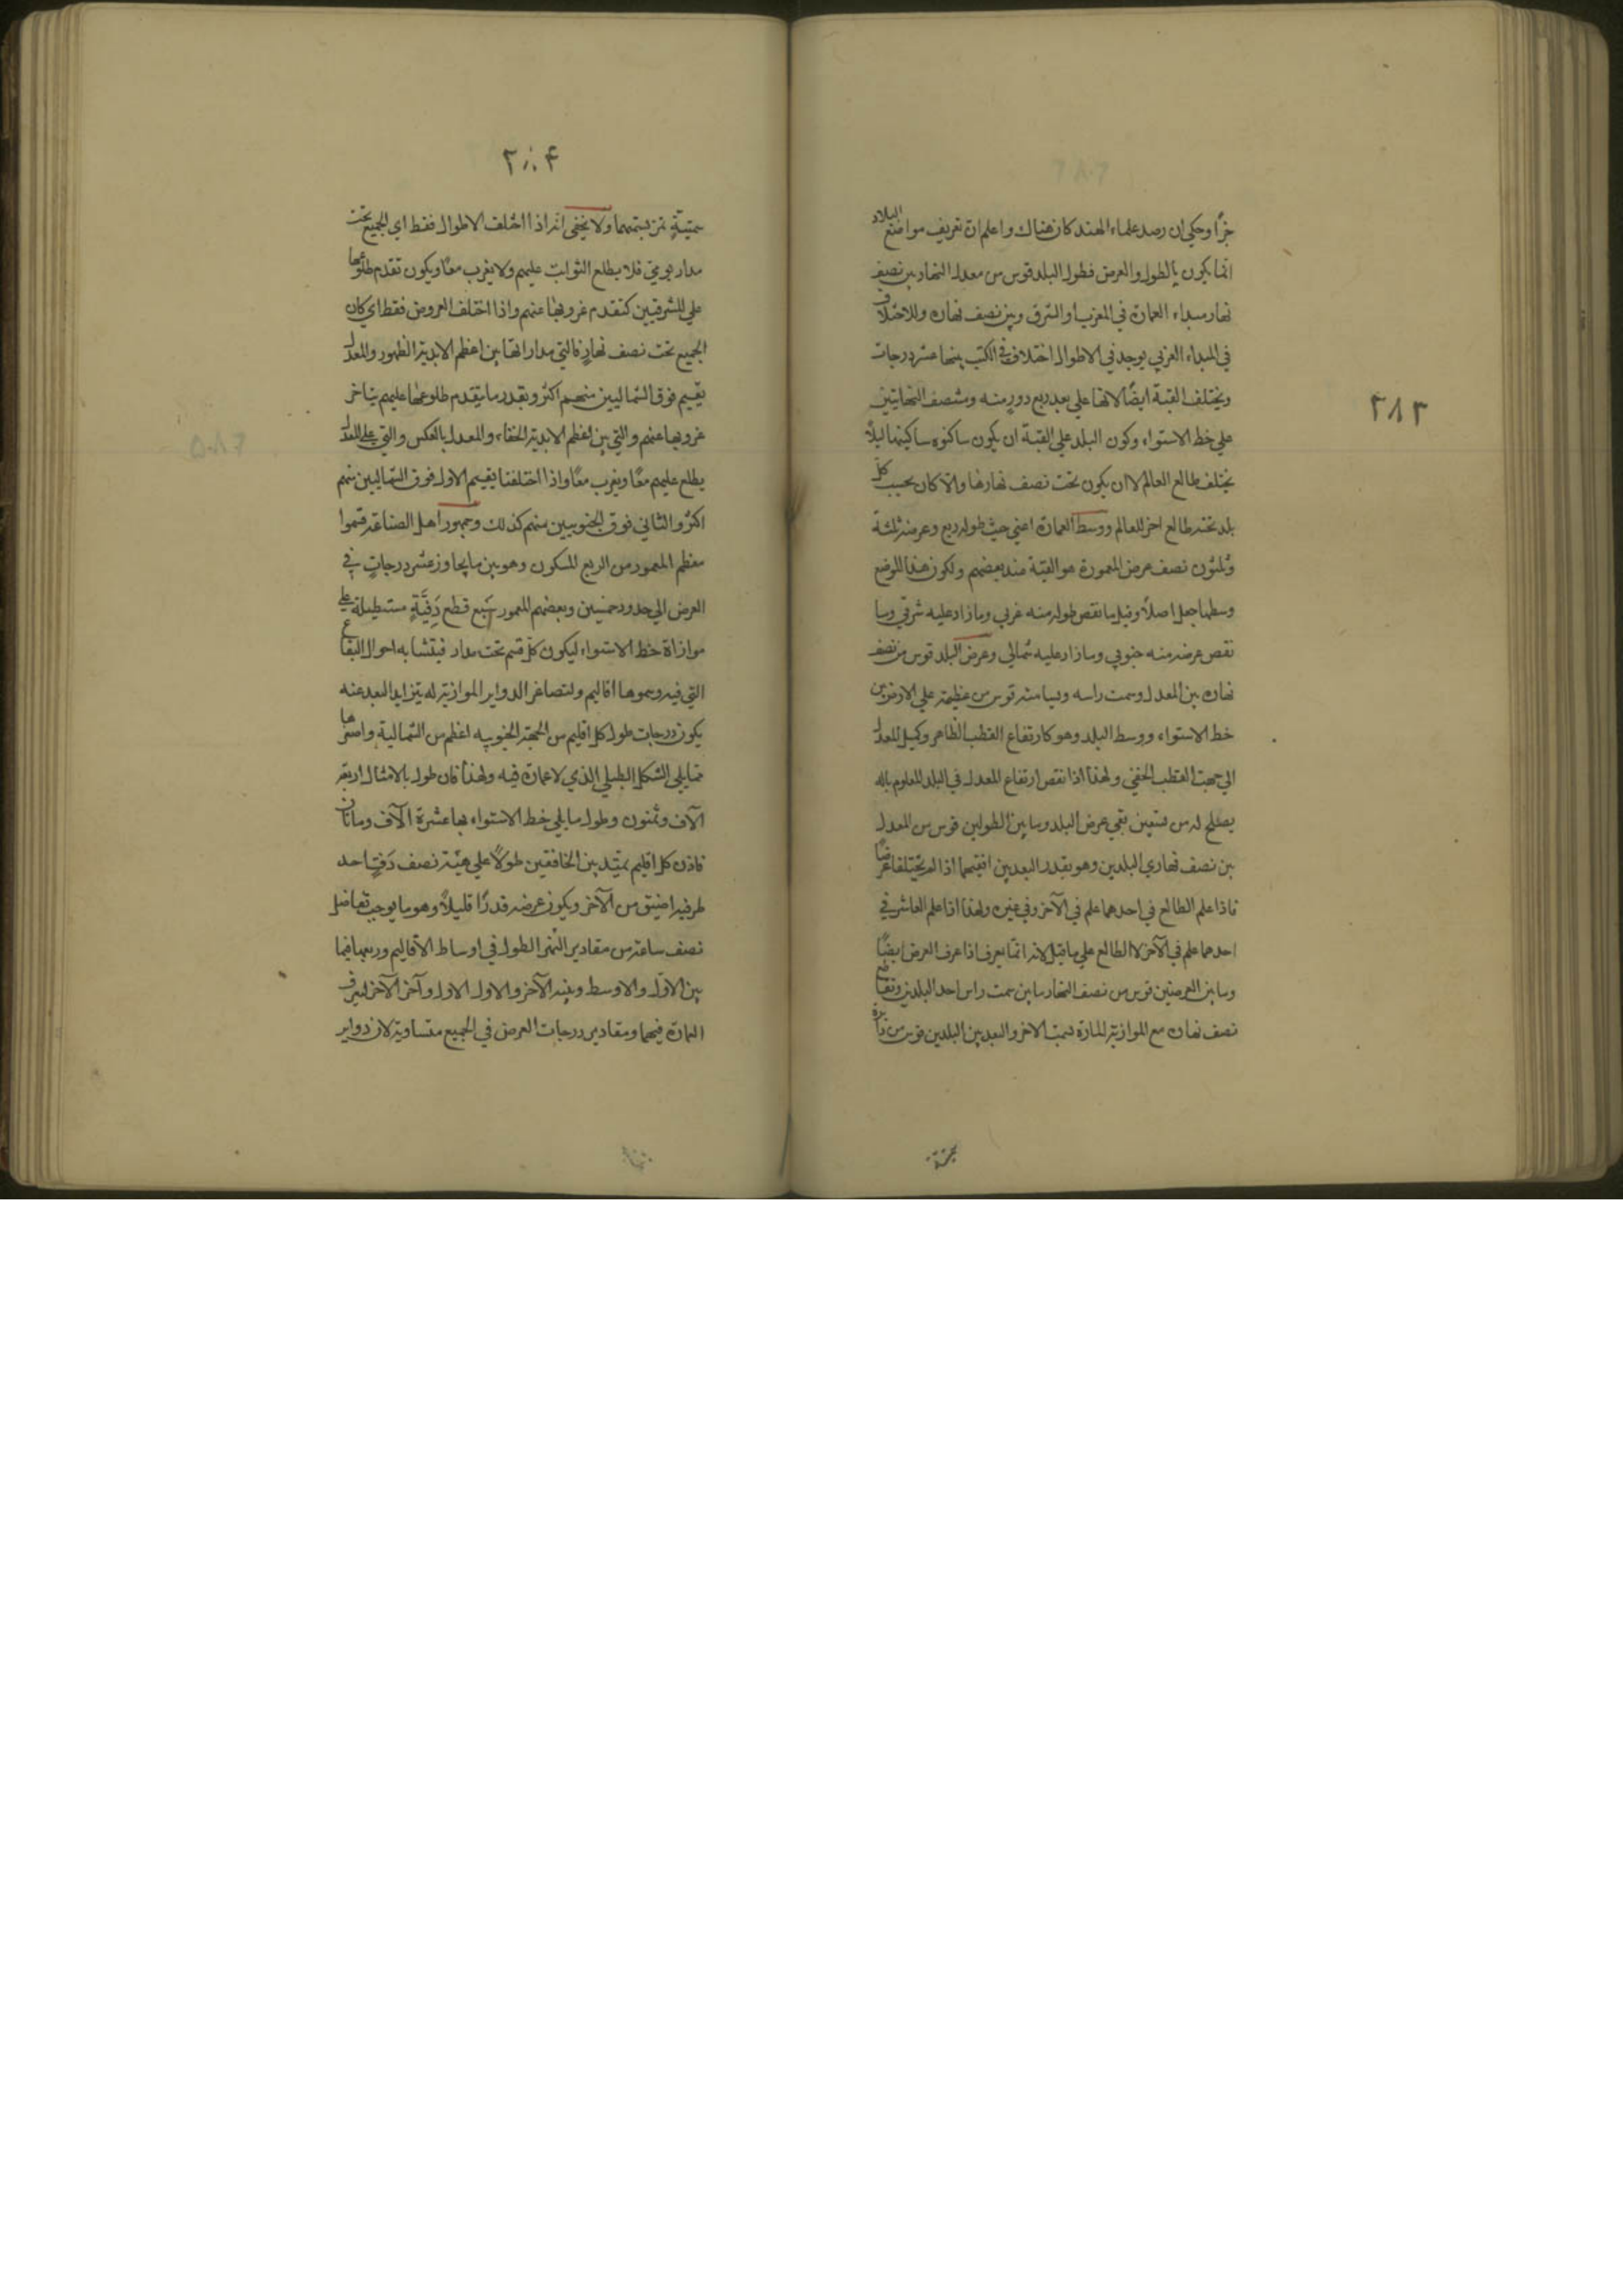 ٣٨٣
جزءًا وحكي ان رصد علماء الهند كان هناك واعلم ان تعريف مواضع البلاد
انما يكون بالطول والعرض فطول البلد قوس من معدل النهار بين نصف
نهار مبداء العمارة في المغرب او الشرق وبين نصف نهاره وللاختلاف
في المبداء الغربي يوجد في الاطوال اختلاف في الكتب بينها عشر درجات
ويختلف القبة ايضًا لانها علي بعد ربع دور منه ومنتصف النهايتين
علي خط الاستواء وكون البلد علي القبة ان يكون ساكنوه ساكنيها ليلًا
يختلف طالع العالم لا ان يكون تحت نصف نهارها والا كان بحسب كل
بلد تحته طالع اخر للعالم ووسط العمارة اعني حيث طوله ربع وعرضه ثلثة
وثلثون نصف عرض المعمورة هو القبة عند بعضهم ولكون هذا الموضع
وسطها جعل اصلًا وقيل ما نقص طوله منه غربي وما زاد عليه شرقي وما
نقص عرضه منه جنوبي وما زاد عليه شمالي وعرض البلد قوس من نصف
نهاره بين المعدل وسمت راسه ويسامته قوس من عظيمة علي الارض بين
خط الاستواء ووسط البلد وهو كارتفاع القطب الظاهر وكميل المعدل
الي جهت القطب الخفي ولهذا اذا نقص ارتفاع المعدل في البلد المعلوم باله
يصلح له من تسعين بقي عرض البلد وما بين الطولين قوس من المعدل
بين نصف نهاري البلدين وهو بقدر البعد بين افقيهما اذا لم يختلفا عرضًا
فاذا علم الطالع في احدهما علم في الآخر وفي غيره ولهذا اذا علم العاشر في
احدهما علم في الآخر لا الطالع علي ما قيل لانه انما يعرف اذا عرف العرض ايضًا
وما بين العرضين قوس من نصف النهار ما بين سمت راس احد البلدين وتقاطع
نصف نهاره مع الموازية المارة بسمت الاخر والبعد بين البلدين قوس من دائرة
سمتية تمر بسمتهما ولا يخفي انه اذا اختلف الاطوال فقط اي الجميع تحت
مدار يومي فلا يطلع الثوابت عليهم ولا يغرب معًا ويكون تقدم طلوعها
علي المشرقيين كتقدم غروبها عنهم واذا اختلف العروض فقط اي كان
الجميع تحت نصف نهار فالتي مداراتها بين اعظم الابدية الظهور والمعدل
يقيم فوق الشماليين منهم اكثر وبقدر ما يتقدم طلوعها عليهم يتاخر
غروبها عنهم والتي بين اعظم الابدية الخفاء والمعدل بالعكس والتي علي المعدل
يطلع عليهم معًا ويغرب معًا واذا اختلفتا يقيم الاول فوق الشماليين منهم
اكثر والثاني فوق الجنوبيين منهم كذلك وجمهور اهل الصناعة قسموا
معظم المعمور من الربع المسكون وهو بين ما يجاوز عشر درجات في
العرض الي حدود خمسين وبعضهم المعمور سبع قطع دَفّيّة مستطيلة علي
موازاة خط الاستواء ليكون كل قسم تحت مدار فيتشابه احوال البقاع
التي فيه وسموها اقاليم ولتصاغر الدواير الموازية له بتزايد البعد عنه
يكون درجات طول كل اقليم من الجهة الجنوبيه اعظم من الشمالية واصغرها
مما يلي الشكل الطبلي الذي لا عمارة فيه ولهذا فان طوله بالاميال اربعة
آلاف وثمنون وطول ما يلي خط الاستواء بها عشرة آلاف ومائتان
فاذن كل اقليم يمتد بين الخافقين طولًا علي هيئة نصف دفٍ احد
طرفيه اضيق من الآخر ويكون عرضه قدرًا قليلًا وهو ما يوجب تفاضل
نصف ساعة من مقادير النهر الطول في اوساط الاقاليم وربعها فيما
بين الاول والاوسط وبينه الآخر والاول الاول وآخر الآخر لتعرف
العمارة فيهما ومقادير درجات العرض في الجميع متساوية لان دواير